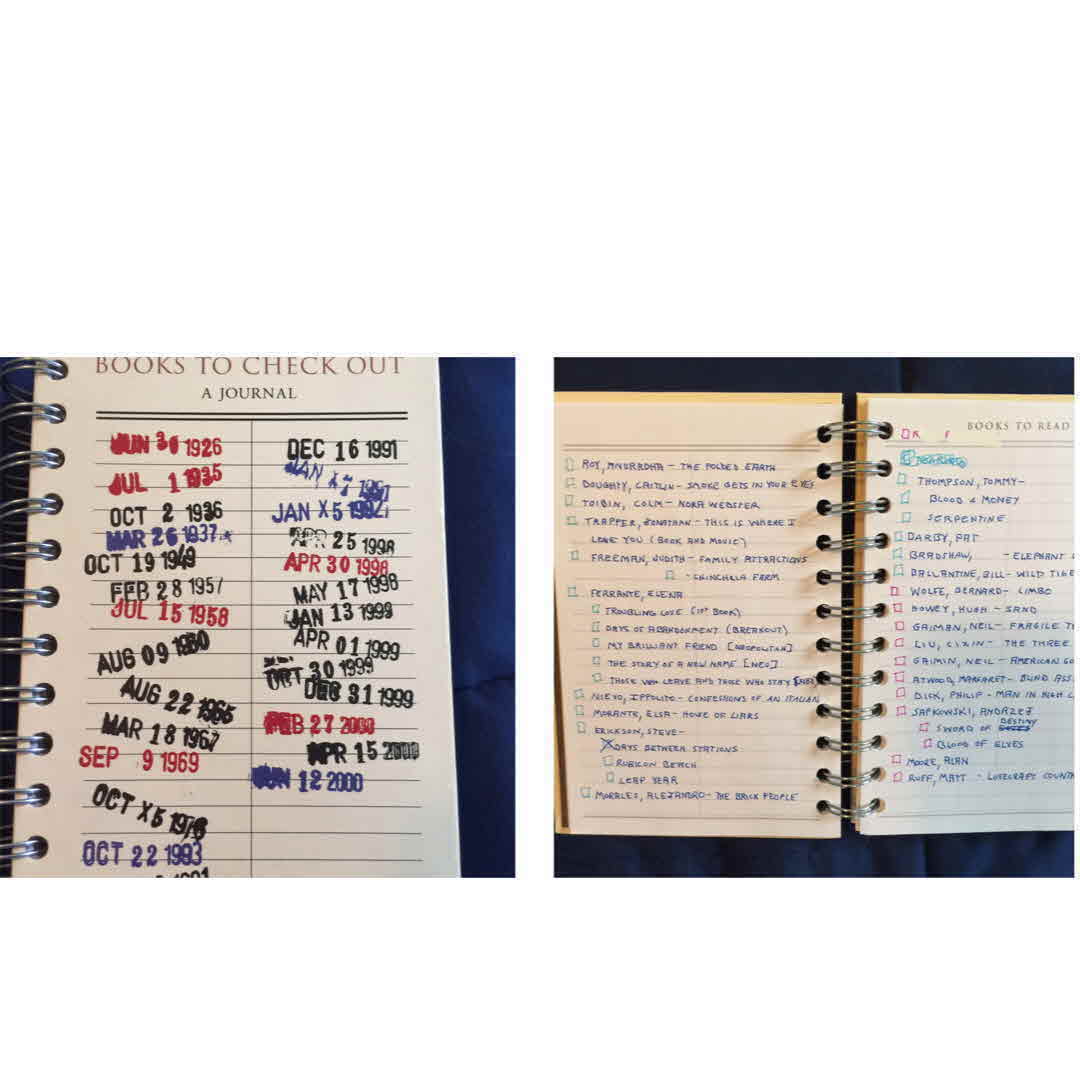 BOOKS TO CHECK OUT
A JOURNAL
JUN 30 1926
JUL 1 1935
OCT 2 1936
MAR 26 1937
OCT 19 1949
FEB 28 1957
JUL 15 1958
AUG 09 1960
AUG 22 1965
MAR 18 1967
SEP 9 1969
OCT X5
OCT 22 1993
DEC 16 1991
JAN
JAN X5 1992
APR 25 1998
APR 30 1998
MAY 17 1998
JAN 13 1999
APR 01 1999
OCT 30 1999
DEC 31 1999
FEB 27 2000
APR 15 2000
JUN 12 2000
ROY, ANURADHA - THE FOLDED EARTH
DOUGHTY, CAITLIN - SMOKE GETS IN YOUR EYES
TOIBIN, COLM - NORA WEBSTER
TRAPPER, JONATHAN - THIS IS WHERE I
LEAVE YOU (BOOK AND MOVIE)
FREEMAN, JUDITH - FAMILY ATTRACTIONS
- CHINCHILLA FARM
FERRANTE, ELENA
TROUBLING LOVE (1ST BOOK)
DAYS OF ABANDONMENT (BREAKOUT)
MY BRILLIANT FRIEND [NEOPOLITAN]
THE STORY OF A NEW NAME [NEO]
THOSE WHO LEAVE AND THOSE WHO STAY
NIEVO, IPPOLITO - CONFESSIONS OF AN ITALIAN
MORANTE, ELSA - HOUSE OF LIARS
ERICKSON, STEVE -
DAYS BETWEEN STATIONS
RUBICON BEACH
LEAP YEAR
MORALES, ALEJANDRO - THE BRICK PEOPLE
BOOKS TO READ
THOMPSON, TOMMY -
BLOOD & MONEY
SERPENTINE
DARBY, PAT
BRADSHAW, - ELEPHANT
BALLANTINE, BILL - WILD TIGE
WOLFE, BERNARD - LIMBO
HOWEY, HUGH - SAND
GAIMAN, NEIL - FRAGILE T
LIU, CIXIN - THE THREE
GAIMIN, NEIL - AMERICAN GO
ATWOOD, MARGARET - BLIND ASS
DICK, PHILIP - MAN IN HIGH C
SAPKOWSKI, ANDRZEJ
SWORD OF DESTINY
BLOOD OF ELVES
MOORE, ALAN
RUFF, MATT - LOVECRAFT COUNT